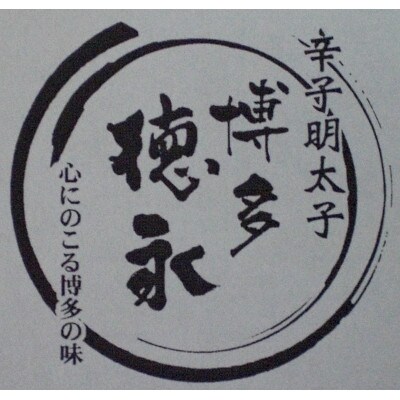 辛子明太子
博多
穂永
心にのこる博多の味